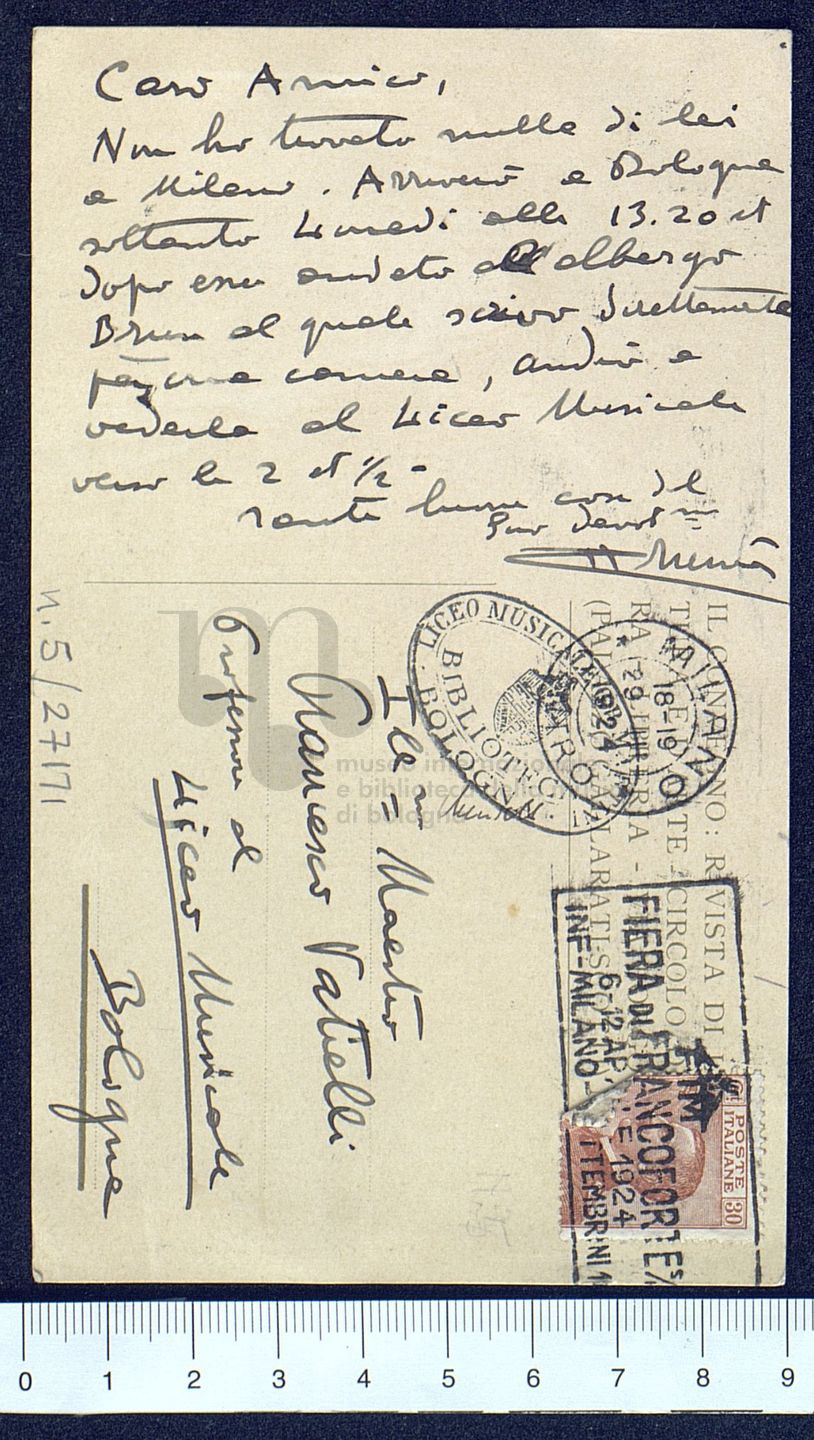 Caro Amico,
Non ho trovato nulla di lei
a Milano. Arriverò a Bologna
soltanto Lunedi alle 13.20 et
dopo esser andato all'albergo
Brun al quale scrivo direttamente
per una camera, andrò a
vederla al Liceo Musicale
verso le 2 et 1/2 -
tante buone cose del
suo devot
n. 5/27171
Maestro
Francesco Vatielli
Professore al
Liceo Musicale
Bologna
LICEO MUSICALE
BIBLIOTECA
BOLOGNA
MILANO
18-19
29
1924
IL CONVEGNO: RIVISTA DI
CIRCOLO
FIERA DI FRANCOFORTE s/M
6-12 APRILE 1924
INF-MILANO- SETTEMBRINI
POSTE
ITALIANE
30
museo internazionale
e biblioteca della musica
di bologna
0 1 2 3 4 5 6 7 8 9